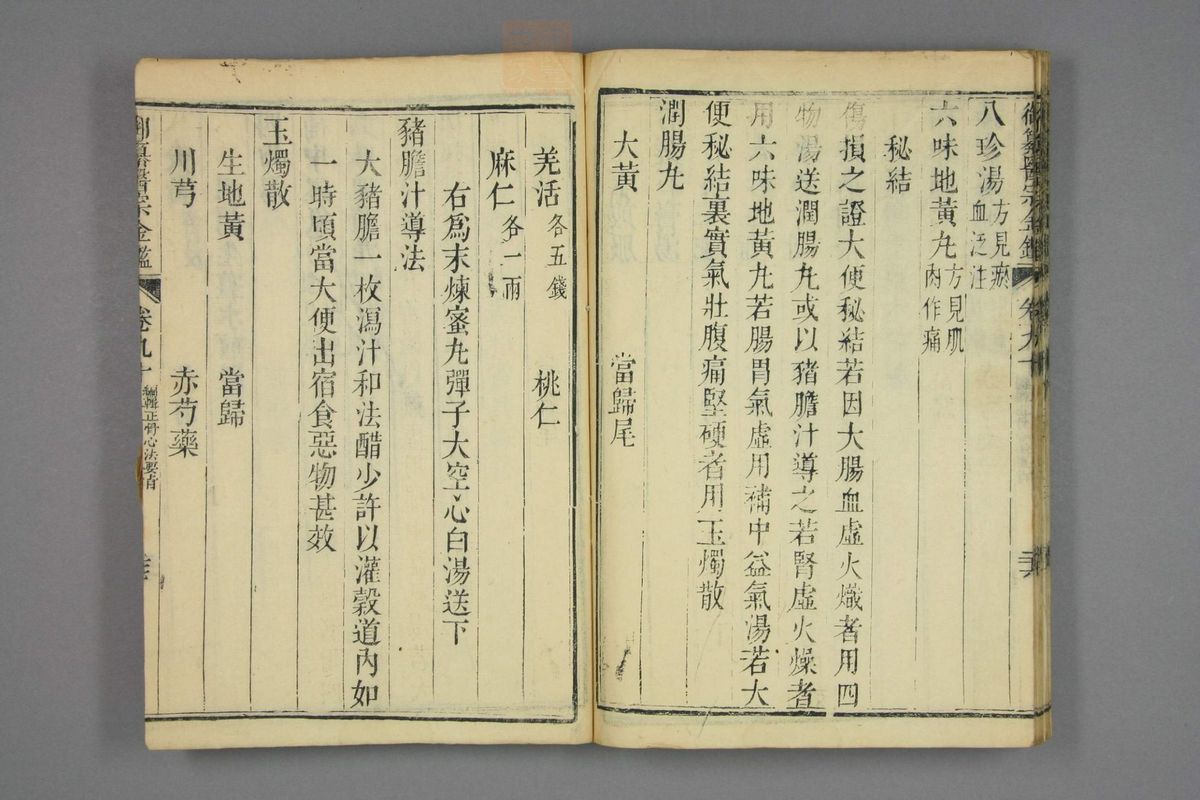 御纂醫宗金鑑 卷九十
八珍湯方見瘀血泛注
六味地黃丸方見肌肉作痛
秘結
傷損之證大便秘結若因大腸血虛火熾者用四
物湯送潤腸丸或以豬膽汁導之若腎虛火燥者
用六味地黃丸若腸胃氣虛用補中益氣湯若大
便秘結裏實氣壯腹痛堅硬者用玉燭散
潤腸丸
大黃 當歸尾
羌活各五錢 桃仁
麻仁各一兩
右為末煉蜜丸彈子大空心白湯送下
豬膽汁導法
大豬膽一枚瀉汁和法醋少許以灌穀道內如
一時頃當大便出宿食惡物甚效
玉燭散
生地黃 當歸
川芎 赤芍藥
御纂醫宗金鑑 卷九十 編輯正骨心法要旨